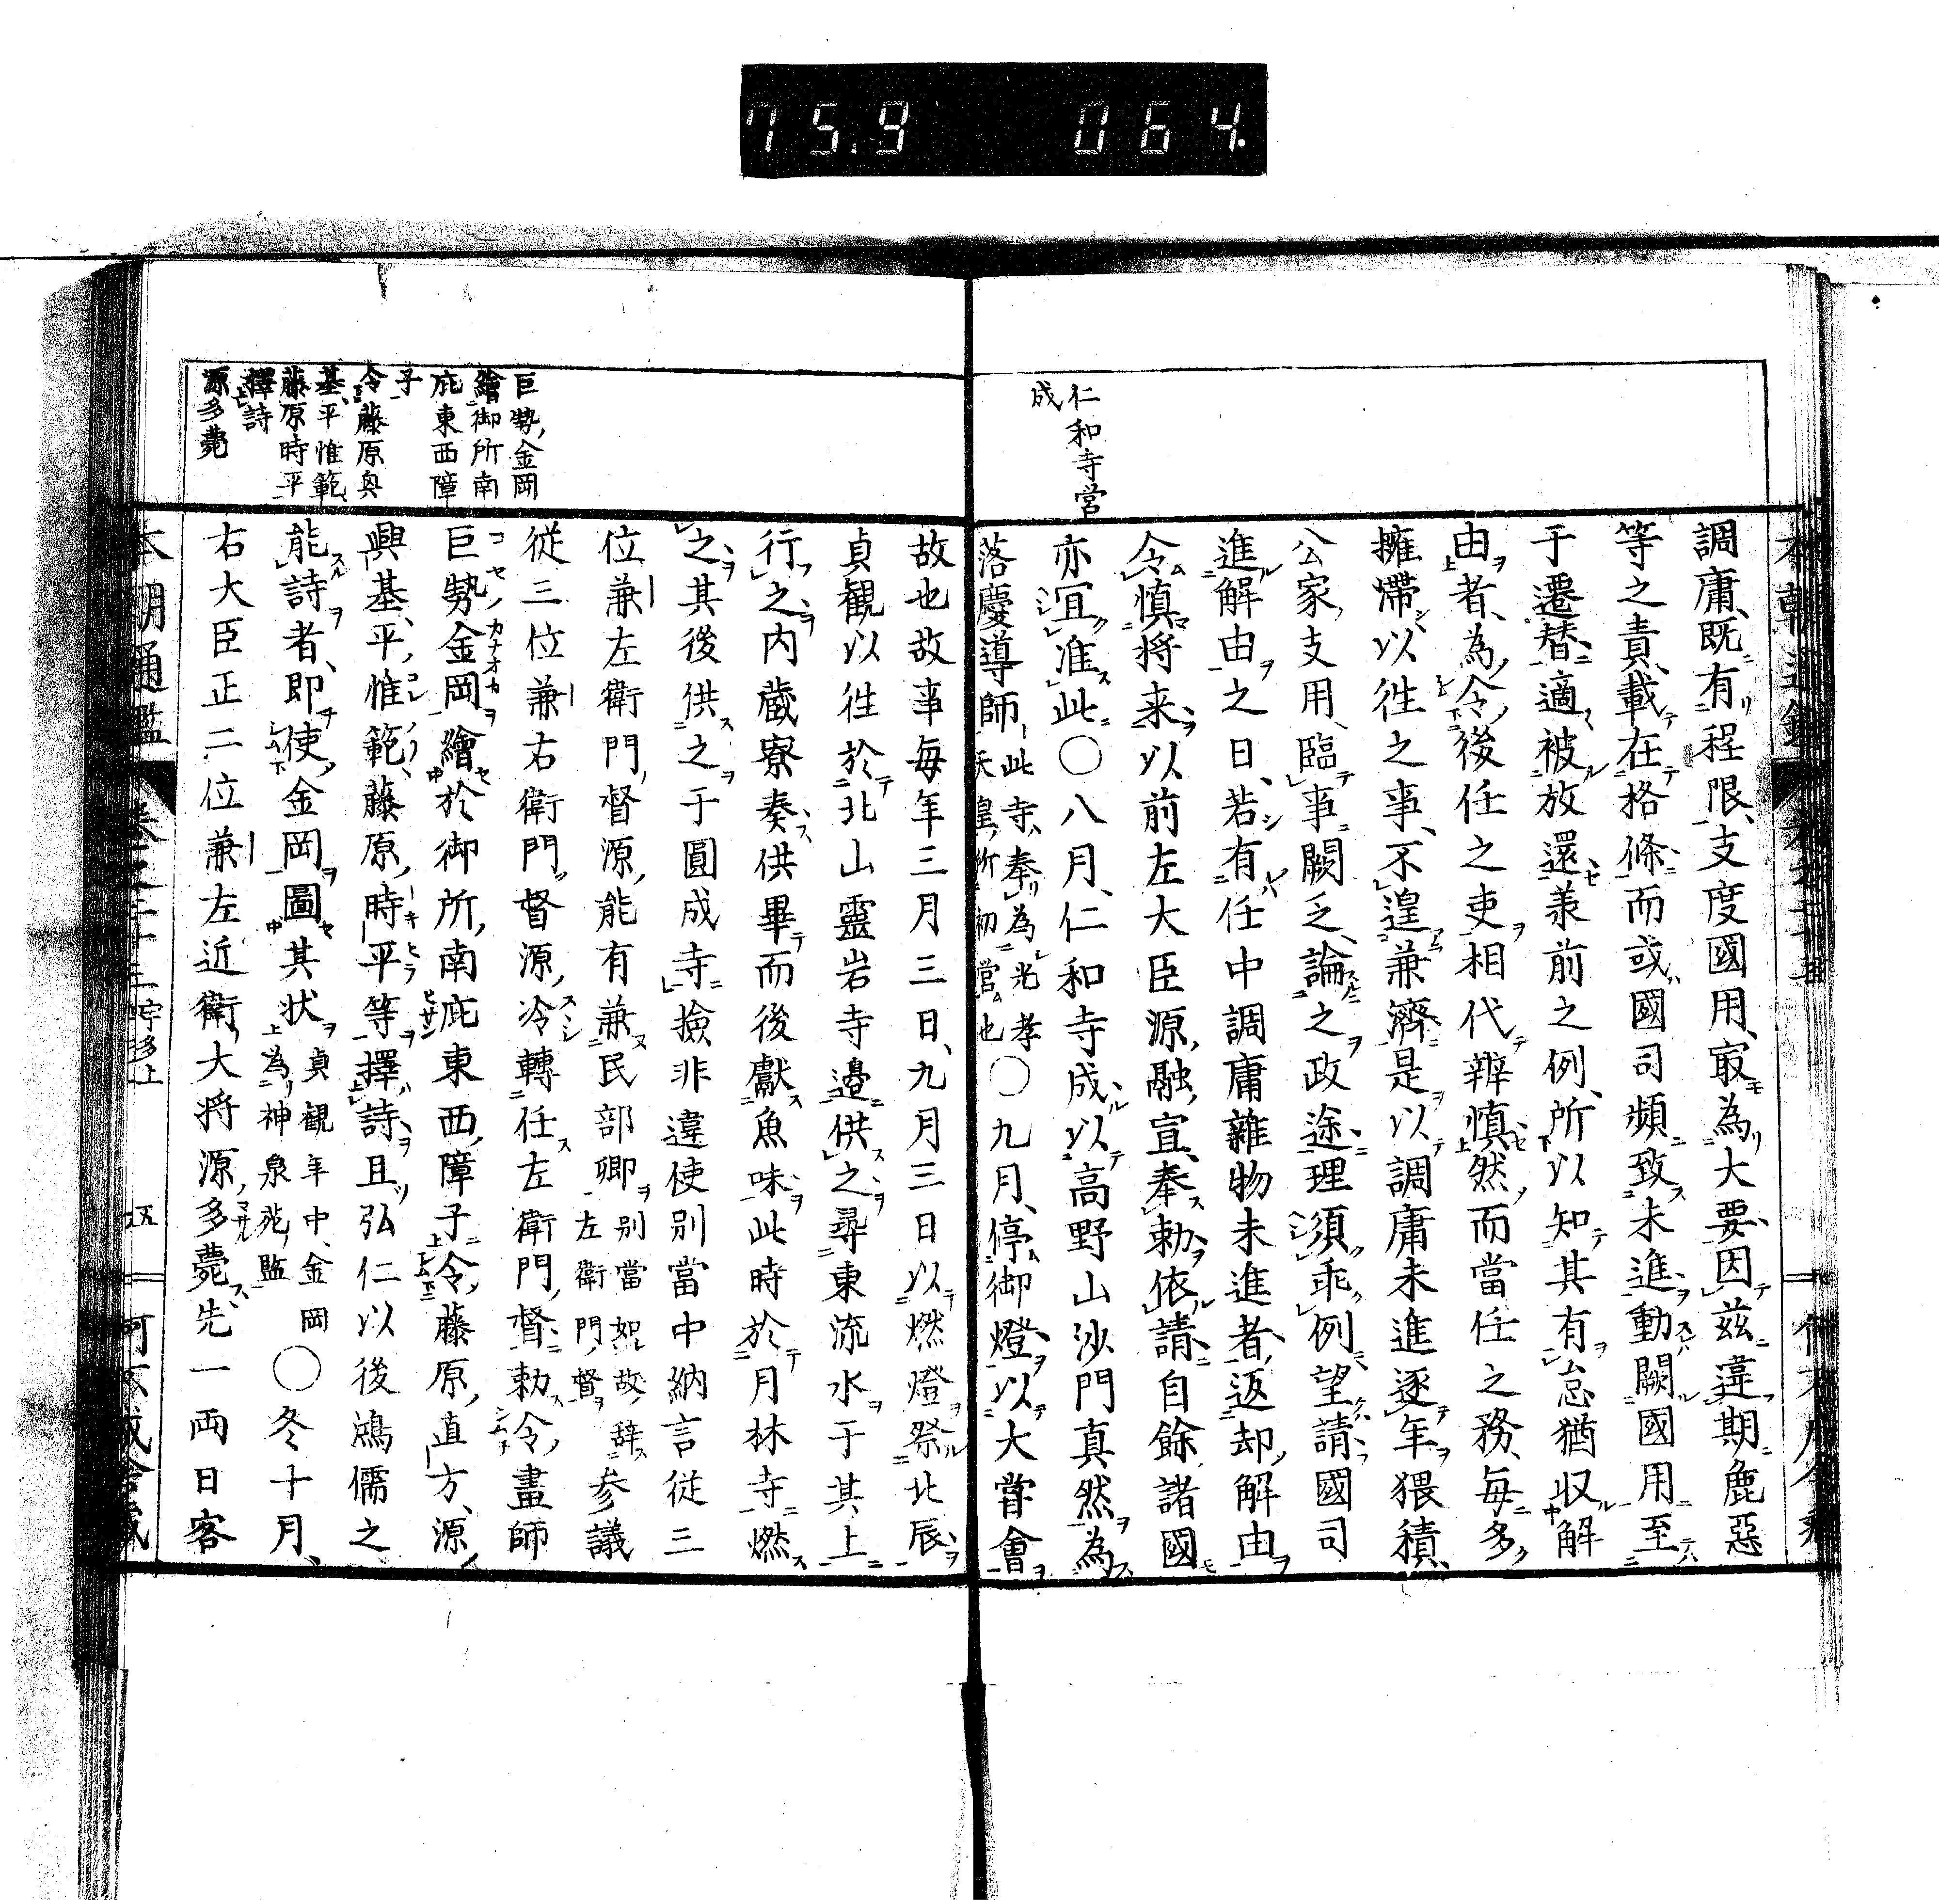 75.9 064.
仁和寺営
成
調庸、既有程限、支度國用、㝡為大要、因茲違期麁惡
等之責、載在格條、而或國司頻致未進、動闕國用、至
于遷替、適被放還、兼前之例、所以知其有怠、猶収解
由者、為令後任之吏相代辨慎然、而當任之務、毎多
擁滯、以徃之事、不遑兼濟、是以調庸未進、逐年猥積、
公家支用、臨事闕乏、論之政途、理須乖例、望請國司
進解由之日、若有任中調庸雜物未進者、返却解由、
令慎将来、以前左大臣源融宣、奉勅、依請、自餘諸國
亦冝准此〇八月、仁和寺成、以高野山沙門真然、為
落慶導師、此寺、奉為光孝
天皇所初営也〇九月、停御燈、以大甞會
故也故事毎年三月三日、九月三日以燃燈祭北辰、
貞観以徃於北山靈岩寺邉供之、尋東流水于其上
行之、内藏寮奏供畢而後獻魚味、此時於月林寺燃
之、其後供之于圓成寺、撿非違使別當中納言従三
位兼左衛門督源能有兼民部卿、別當如故、辞
左衛門督参議
従三位兼右衛門督源冷轉任左衛門督、勅令畫師
巨勢金岡繪於御所南庇東西障子、令藤原直方、源
興基、平惟範、藤原時平等擇詩、且弘仁以後鴻儒之
能詩者、即使金岡圖其状、貞観年中、金岡
為神泉苑監〇冬十月、
右大臣正二位兼左近衛大将源多薨、先一兩日客
巨勢金岡
繪御所南
庇東西障
子
令藤原興
基平惟範
藤原時平
擇詩
源多薨
本朝通鑑